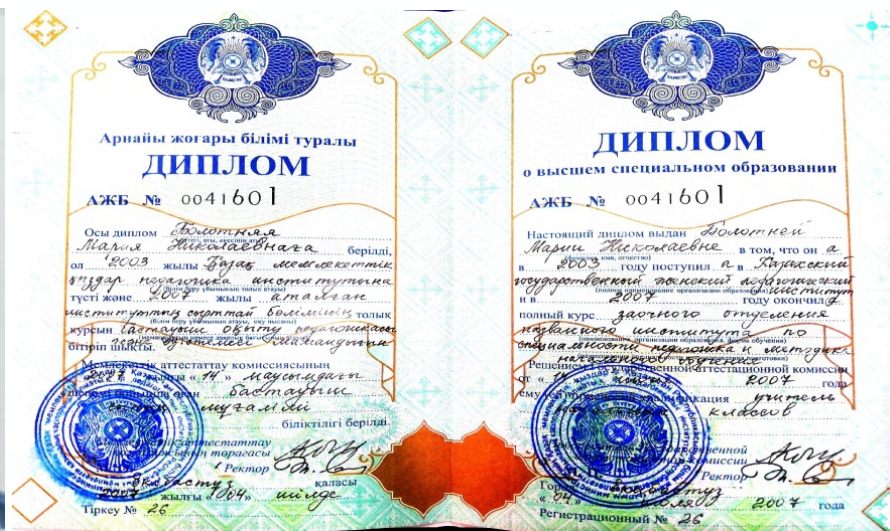 Арнайы жоғары білімі туралы
ДИПЛОМ
АЖБ № 0041601
Осы диплом Болотная
Мария Николаевнаға берілді,
ол 2003 жылы Қазақ мемлекеттік
қыздар педагогика институтына
түсті және 2007 жылы аталған
институттың сырттай бөлімінің толық
курсын бастауыш оқыту педагогикасы
және әдістемесі мамандығын
бітіріп шықты.
Мемлекеттік аттестаттау комиссиясының
2007 жылғы «14» маусымдағы
бастауыш
мұғалімі
біліктілігі берілді.
Мемлекеттік аттестаттау
комиссиясының төрағасы
Ректор
Екібастұз қаласы
2007 жылғы «04» шілде
Тіркеу № 26
ДИПЛОМ
о высшем специальном образовании
АЖБ № 0041601
Настоящий диплом выдан Болотней
Марии Николаевне в том, что он а
(фамилия, имя, отчество)
в 2003 году поступил а в Казахский
государственный женский педагогический институт
и в 2007 году окончил а
полный курс заочного отделения
названного института по
специальности педагогика и методика
начального обучения
Решением Государственной аттестационной комиссии
от « 2007 года
квалификация учитель
классов
комиссии
Ректор
« 04 » июля 2007 года
Регистрационный № 26